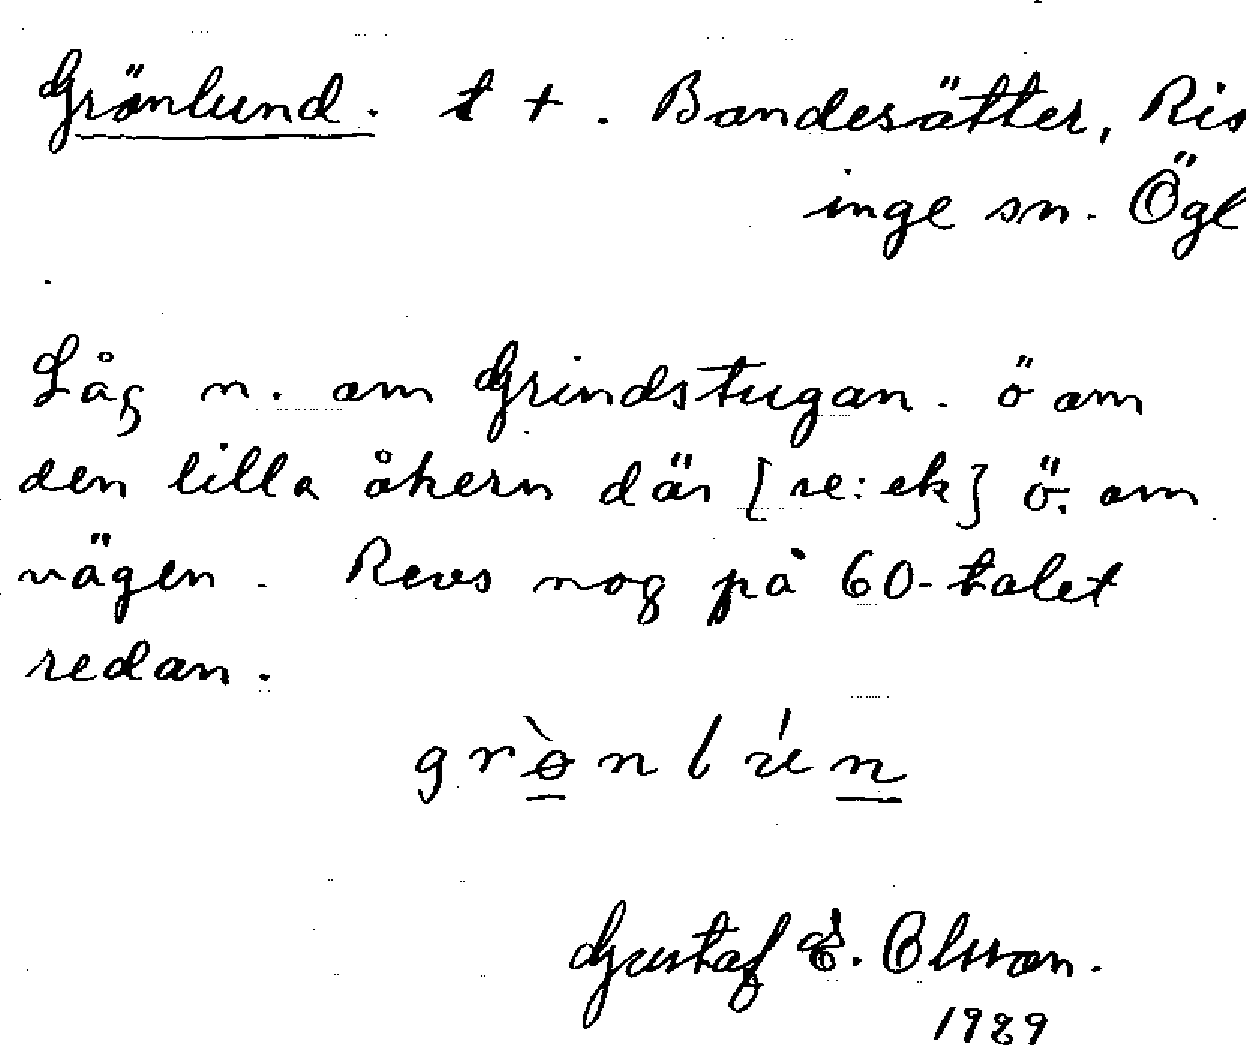 Grönlund. t +. Bandesätter, Ris
inge sn. Ögl
Låg n. om Grindstugan. ö om
den lilla åkern där [re: ek] ö. om
vägen. Revs nog på 60-talet
redan.
grønlún
Gustaf E. Olsson.
1989